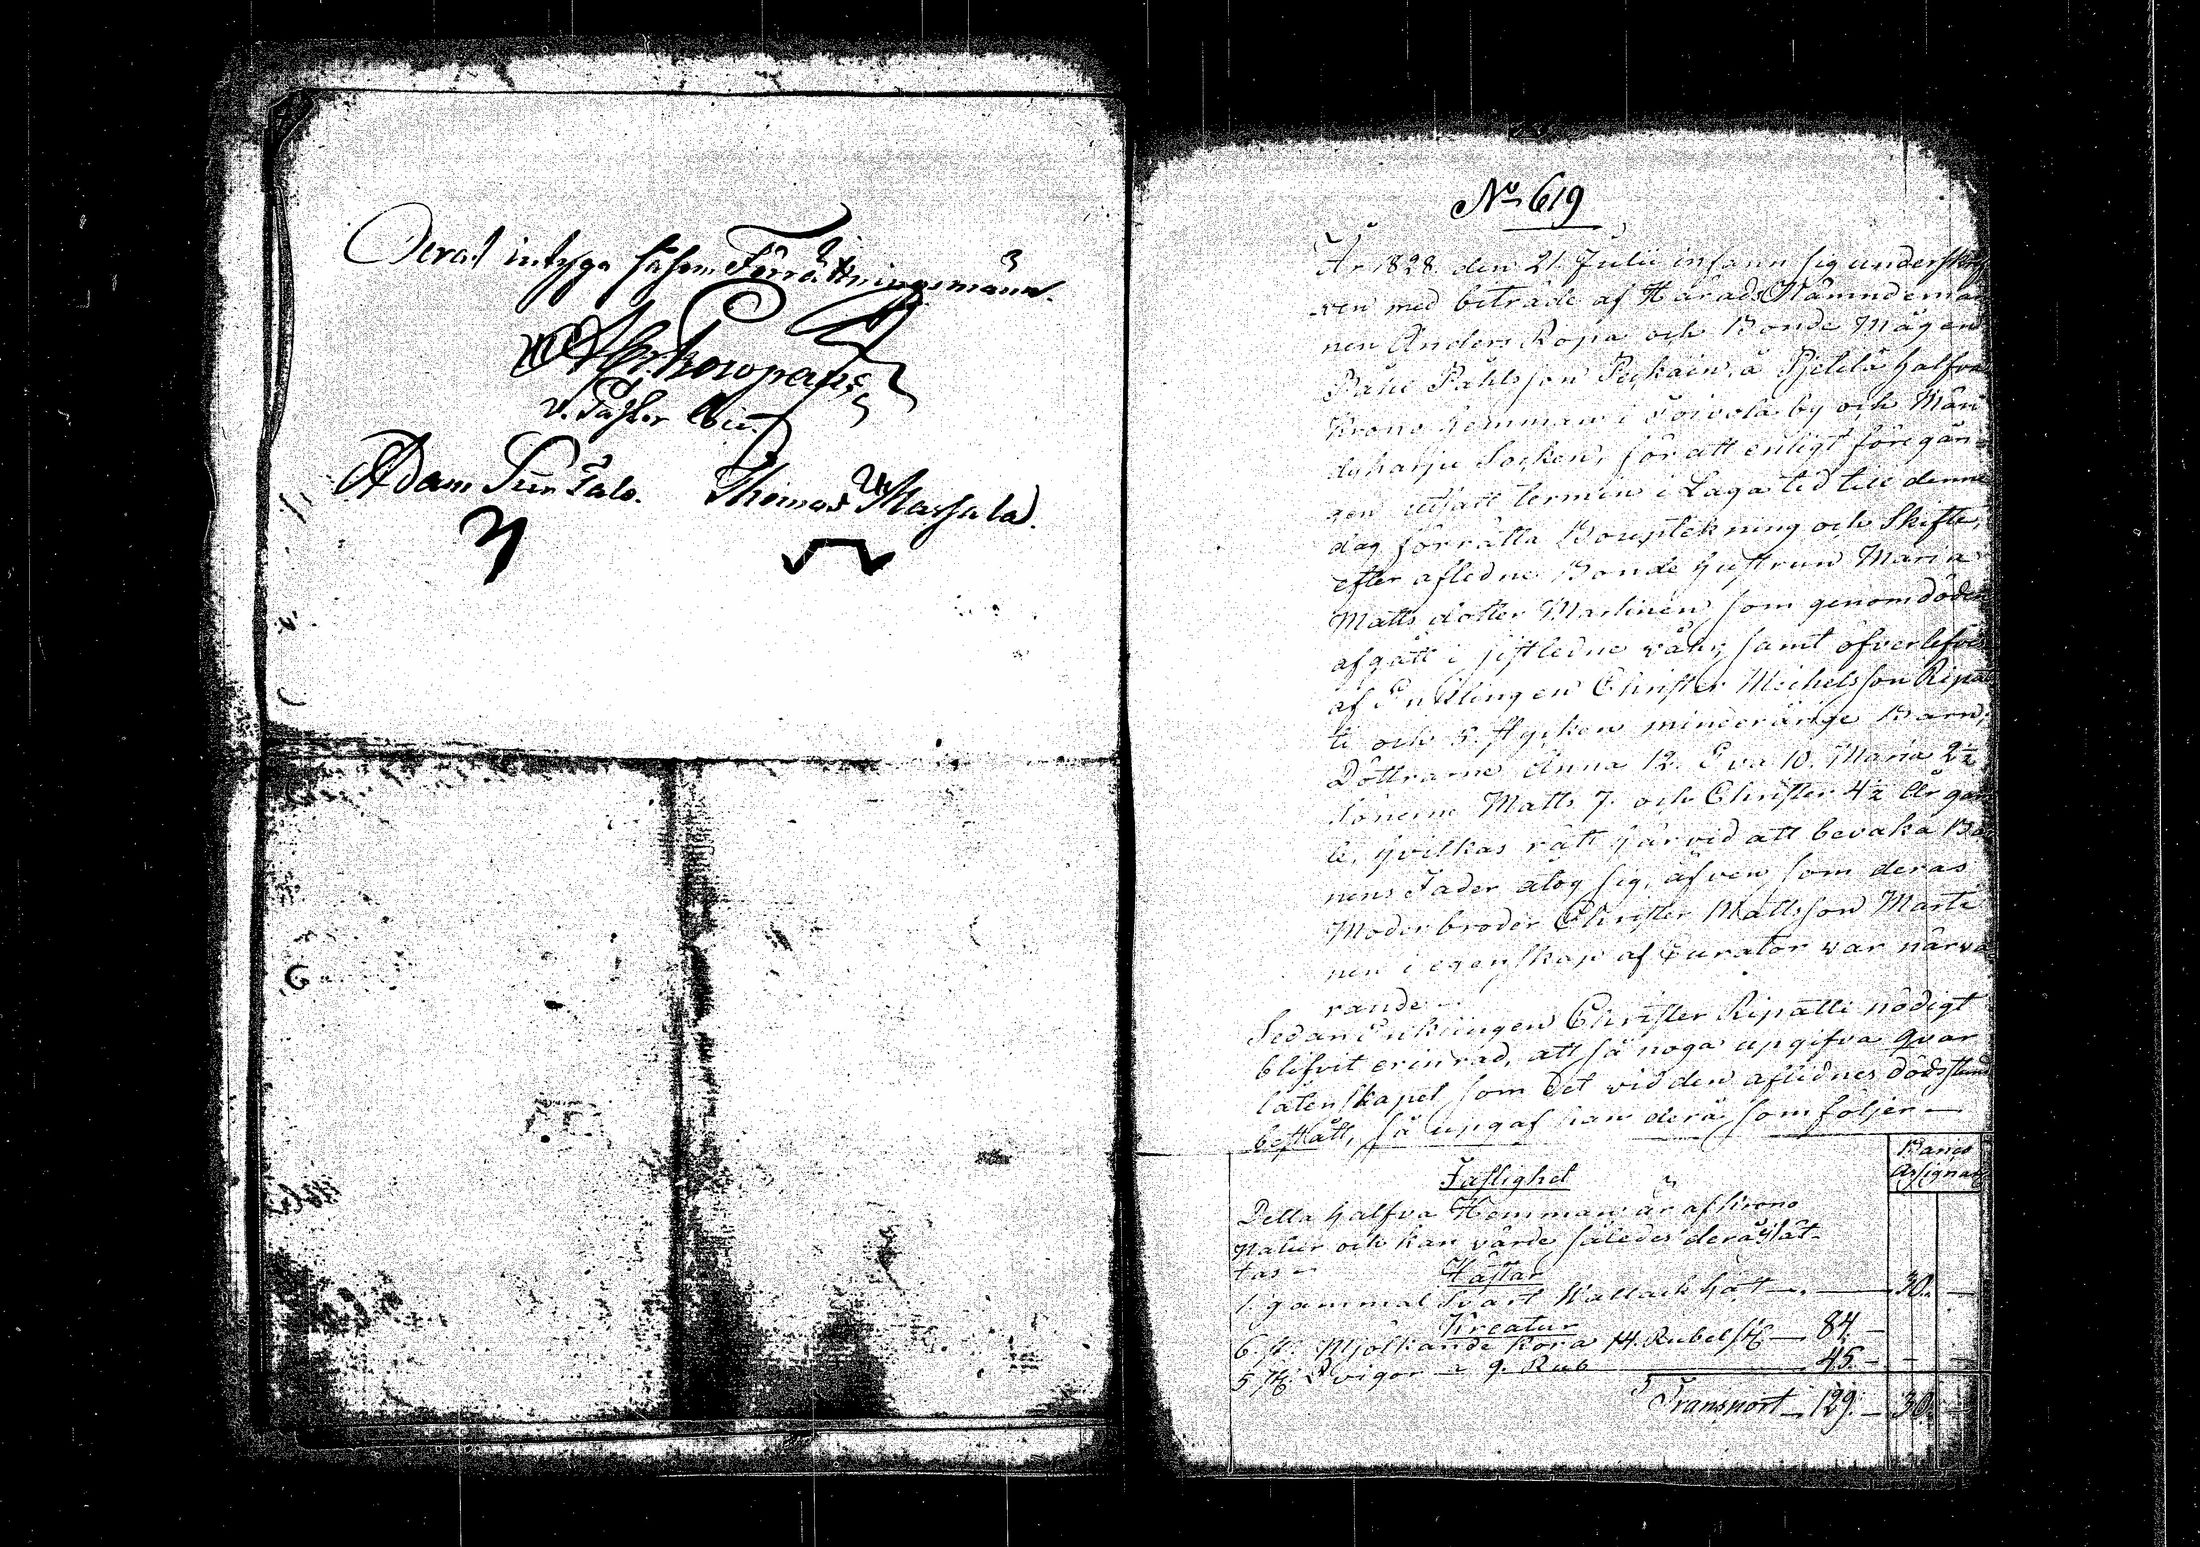 Derat intyga såsom Förrättningsmänn.
Adam Sun Talo. Thomas Massala.
No 619
År 1828 den 21 Julii infann sig underskrif
ven med biträde af Härads Nämndeman
nen Anders Ropa och Bonde Mågen
Påhl Påhlsson å Pjelilä halfva
Krono hemman i Toivola by och Män
dyharju Socken, för att enligt föregån-
gen utsatt termin i Laga tid till denne
dag förrätta Bouptekning och Skifte,
efter aflidne Bonde hustrun Maria
Matts dotter Martinen, som genom döden
afgått i sistledne våhr, samt öfverlefves
af Enklingen Christer Michelsson Ripat
ti och 5. stycken minderårige Barn;
Döttrarne Anna 12. Eva 10. Maria 2½
Sönerne Matts 7. och Christer 4½ År gam
le, hvilkas rätt härvid att bevaka Bar
nens Fader ålog sig, äfven som deras
Moderbroder Christer Mattsson Marti
nen i egenskap af Curator war närva
rande.
Sedan Enklingen Christer Ripatti nödigt
blifvit erinrad, att så noga upgifva qvar
låtenskapet som det vid den aflidnes dödsstund
bestått, så upgaf han derä som följer —
Banco
Assignat:
Fastighet
Detta halfva Hemman är af Krono
natur och kan värde således derå ej såt-
tas —
Hästar
1. gammal Svart Wallack häst — 30. —
Kreatur
6. st. Mjölkande Kora 14. Rubel st — 84 —
5. st. Qvigor — a 9. Rub — 45. — — —
Transport — 129. — 30. —